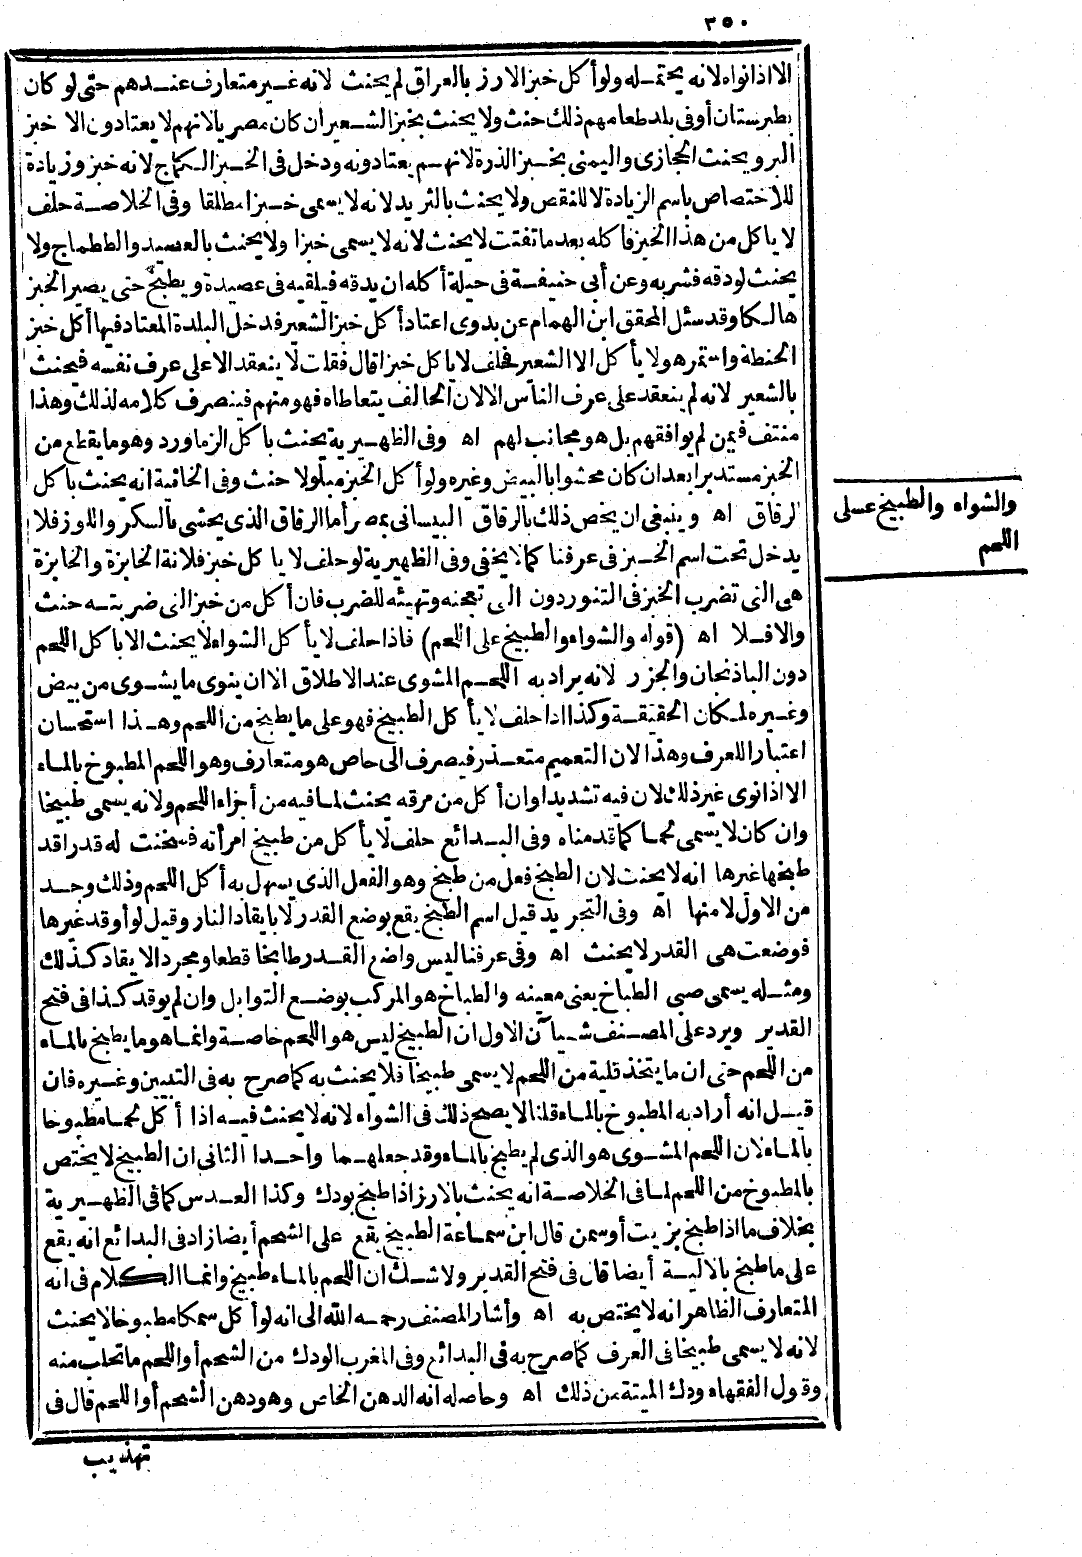 ٣٥٠
الا اذا نواه لانه يحتمله ولو أكل خبز الارز بالعراق لم يحنث لانه غير متعارف عندهم حتى لو كان
بطبرستان أو فى بلد طعامهم ذلك حنث ولا يحنث بخبز الشعير ان كان مصريا لانهم لا يعتادون الا خبز
البر ويحنث الحجازى واليمنى بخبز الذرة لانهم يعتادونه ودخل فى الخبز الكماج لانه خبز وزيادة
للاختصاص باسم الزيادة لا للنقص ولا يحنث بالثريد لانه لا يسمى خبزا مطلقا وفى الخلاصة حلف
لا يا كل من هذا الخبز فاكله بعد ما تفتت لا يحنث لانه لا يسمى خبزا ولا يحنث بالعصيد والططماج ولا
يحنث لو دقه فشربه وعن أبى حنيفة فى حيلة أكله ان يدقه فيلقيه فى عصيدة ويطبخ حتى يصير الخبز
هالكا وقد سئل المحقق ابن الهمام عن بدوى اعتاد أكل خبز الشعير فدخل البلدة المعتاد فيها أكل خبز
الحنطة واستمر هو لا يأكل الا الشعير فحلف لا يا كل خبزا قال فقلت لا ينعقد الا على عرف نفسه فيحنث
بالشعير لانه لم ينعقد على عرف الناس الا لان الحالف يتعاطاه فهو منهم فينصرف كلامه لذلك وهذا
منتف فيمن لم يوافقهم بل هو مجانب لهم اه وفى الظهيرية يحنث با كل الزماورد وهو ما يقطع من
الخبز مستديرا بعد ان كان محشوا بالبيض وغيره ولو أكل الخبز مبلولا حنث وفى الخانية انه يحنث با كل
الرقاق اه وينبغى ان يخص ذلك بالرقاق البيسانى بمصر أما الرقاق الذى يحشى بالسكر واللوز فلا
يدخل تحت اسم الخبز فى عرفنا كما لا يخفى وفى الظهيرية لو حلف لا يا كل خبز فلانة الخابزة والخابزة
هى التى تضرب الخبز فى التنور دون التى تعجنه وتهيئه للضرب فان أكل من خبز التى ضربته حنث
والا فلا اه (قوله والشواء والطبيخ على اللحم) فاذا حلف لا يأكل الشواء لا يحنث الا با كل اللحم
دون الباذنجان والجزر لانه يراد به اللحم المشوى عند الاطلاق الا ان ينوى ما يشوى من بيض
وغيره لمكان الحقيقة وكذا اذا حلف لا يأكل الطبيخ فهو على ما يطبخ من اللحم وهذا استحسان
اعتبارا للعرف وهذا لان التعميم متعذر فيصرف الى خاص هو متعارف وهو اللحم المطبوخ بالماء
الا اذا نوى غير ذلك لان فيه تشديدا وان أكل من مرقه يحنث لما فيه من أجزاء اللحم ولانه يسمى طبيخا
وان كان لا يسمى لحما كما قدمناه وفى البدائع حلف لا يأكل من طبيخ امرأته فسخنت له قدرا قد
طبخها غيرها انه لا يحنث لان الطبيخ فعل من طبخ وهو الفعل الذى يسهل به أكل اللحم وذلك وجد
من الاول لا منها اه وفى التجريد قيل اسم الطبيخ يقع بوضع القدر لا بايقاد النار وقيل لو أوقد غيرها
فوضعت هى القدر لا يحنث اه وفى عرفنا ليس واضع القدر طابخا قطعا ومجرد الايقاد كذلك
ومثله يسمى صبى الطباخ يعنى معينه والطباخ هو المركب بوضع التوابل وان لم يوقد كذا فى فتح
القدير ويرد على المصنف شيآن الاول ان الطبيخ ليس هو اللحم خاصة وانما هو ما يطبخ بالماء
من اللحم حتى ان ما يتخذ قلية من اللحم لا يسمى طبيخا فلا يحنث به كما صرح به فى التبيين وغيره فان
قيل انه أراد به المطبوخ بالماء قلنا لا يصح ذلك فى الشواء لانه لا يحنث فيه اذا أكل لحما مطبوخا
بالماء لان اللحم المشوى هو الذى لم يطبخ بالماء وقد جعلهما واحدا الثانى ان الطبيخ لا يختص
بالمطبوخ من اللحم لما فى الخلاصة انه يحنث بالارز اذا طبخ بودك وكذا العدس كما فى الظهيرية
بخلاف ما اذا طبخ بزيت أو سمن قال ابن سماعة الطبيخ يقع على الشحم أيضا زاد فى البدائع انه يقع
على ما طبخ بالالية أيضا قال فى فتح القدير ولا شك ان اللحم بالماء طبيخ وانما الكلام فى انه
المتعارف الظاهر انه لا يختص به اه وأشار المصنف رحمه الله الى انه لو أكل سمكا مطبوخا لا يحنث
لانه لا يسمى طبيخا فى العرف كما صرح به فى البدائع وفى المغرب الودك من الشحم أو اللحم ما تحلب منه
وقول الفقهاء ودك الميتة من ذلك اه وحاصله انه الدهن الخاص وهو دهن الشحم أو اللحم قال فى
تهذيب
والشواء والطبيخ على
اللحم